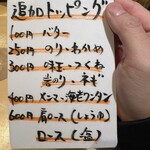 追加トッピング
100円 バター
250円 のり・わかめ
300円 味玉・つくね
岩のり・ネギ
400円 メンマ・海老ワンタン
600円 肩ロース(しょうゆ)
ロース(塩)